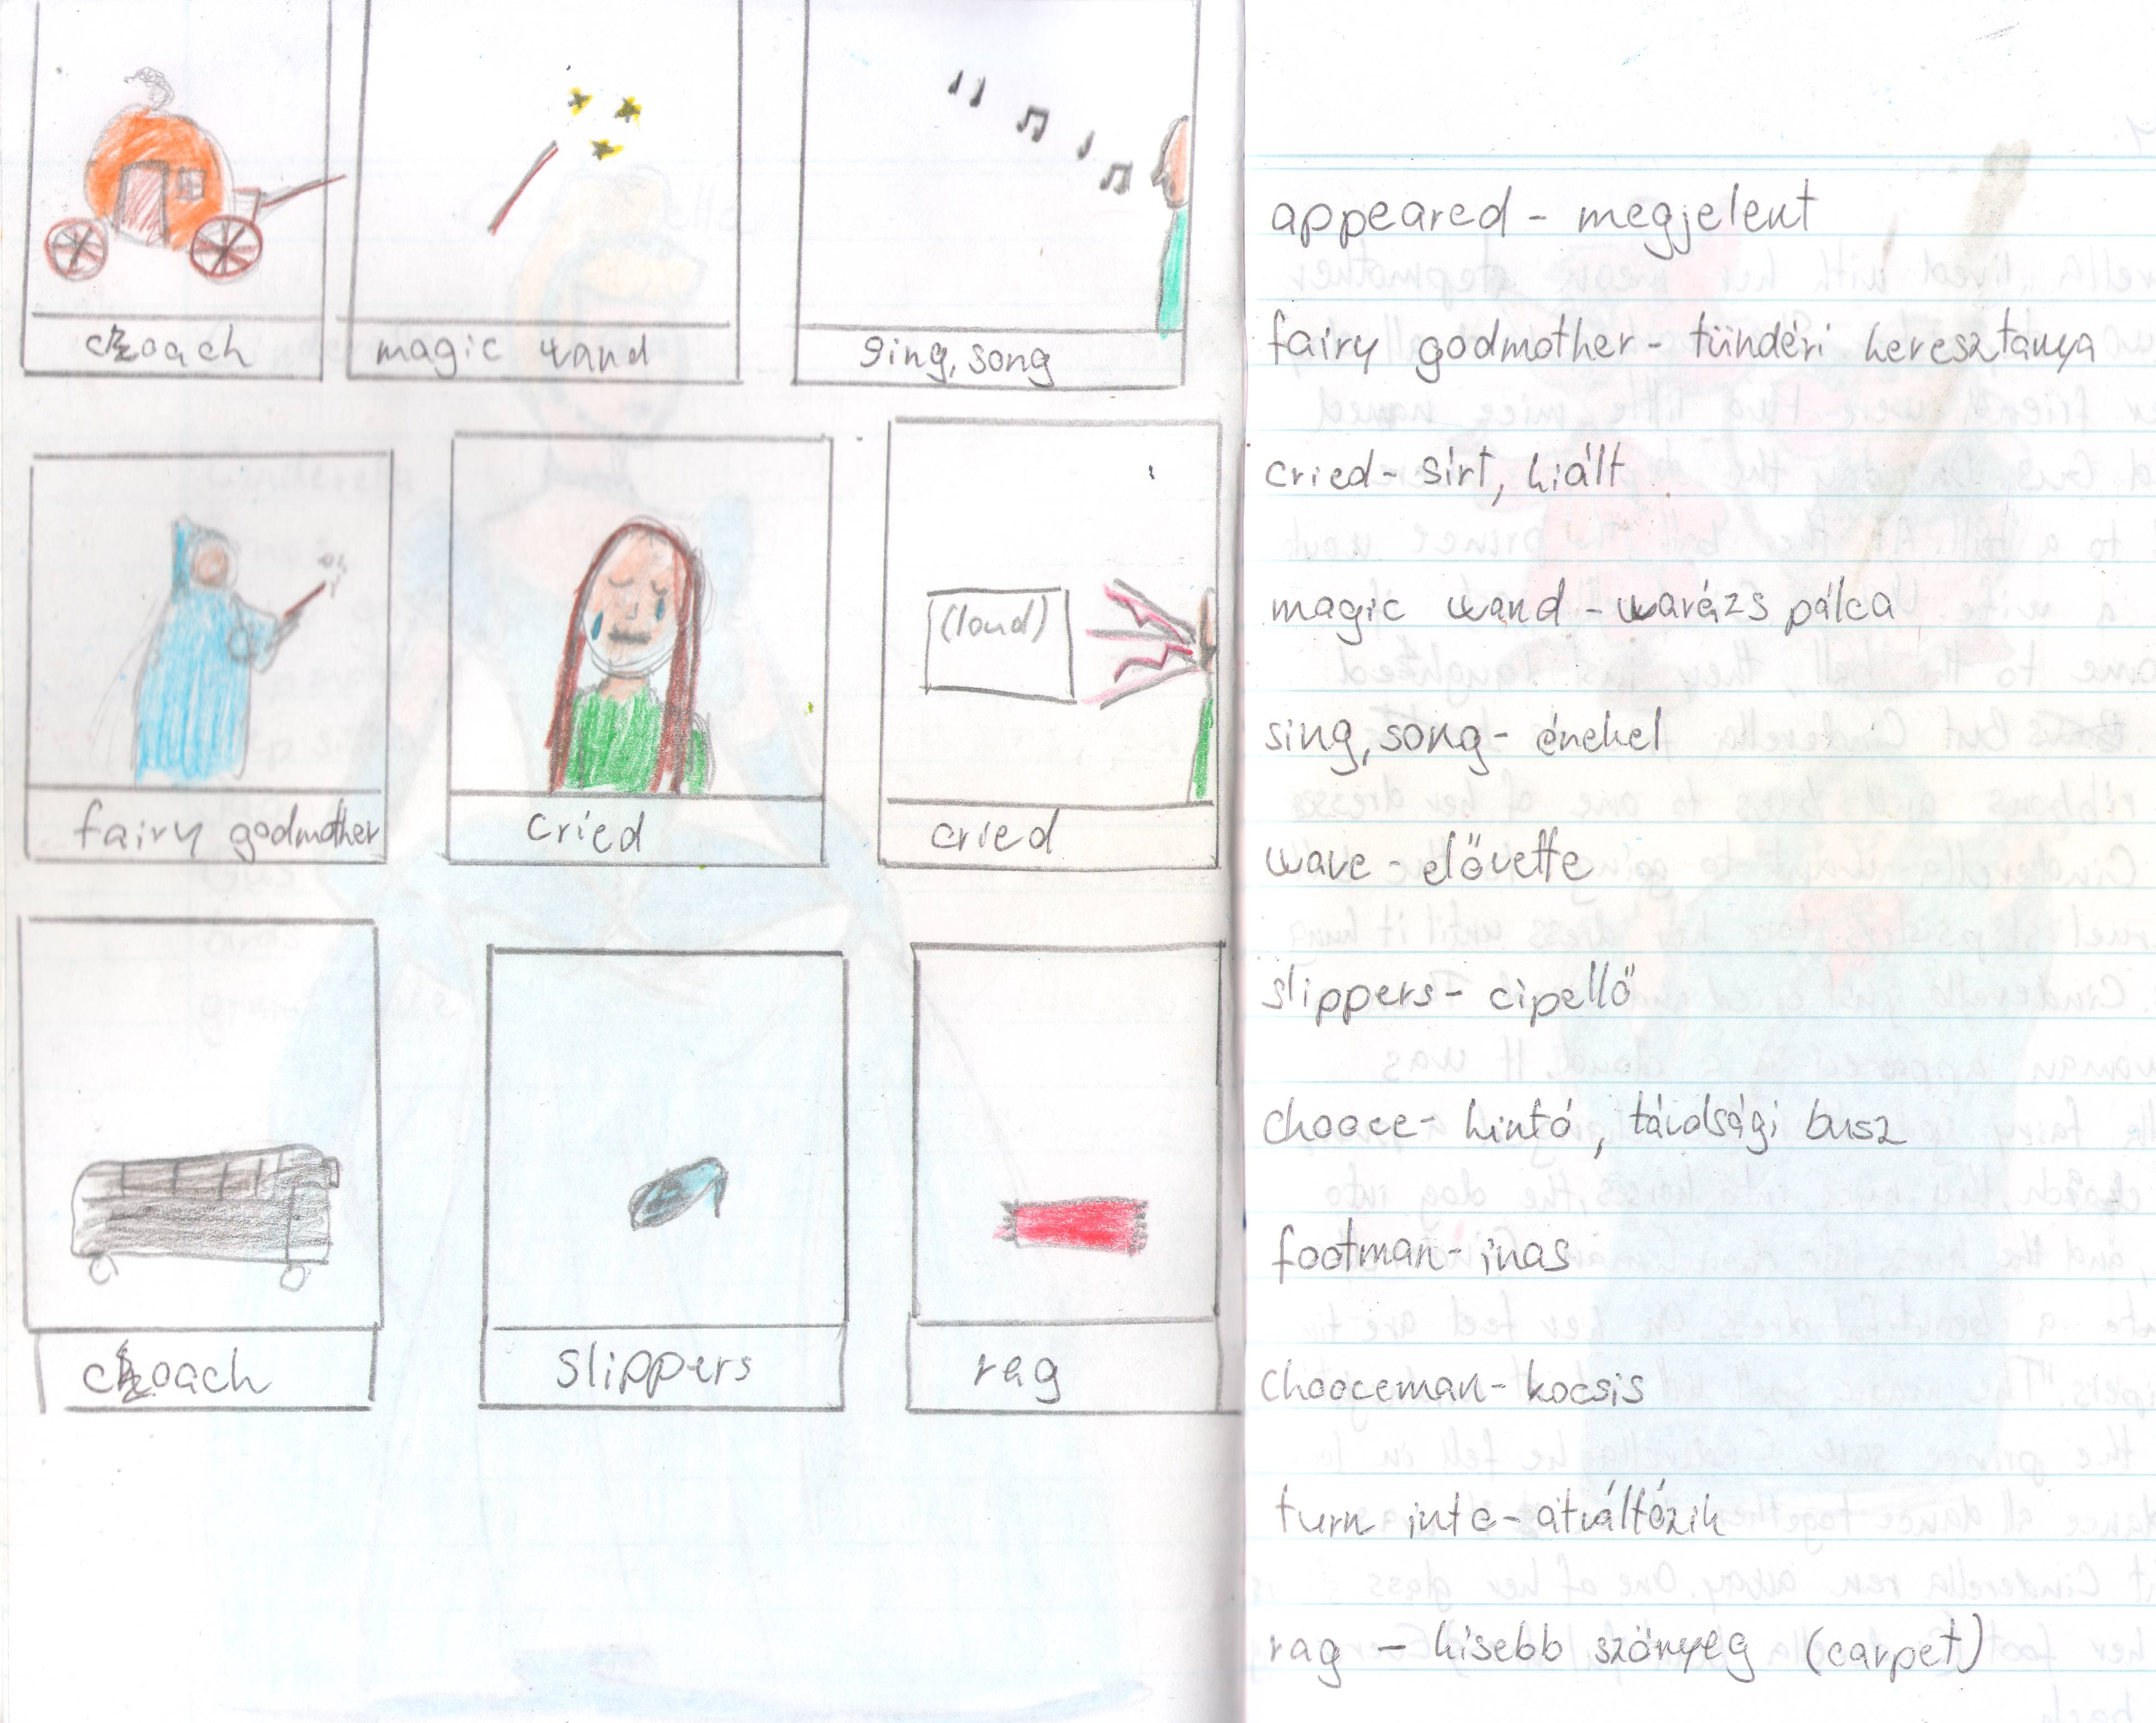 coach
magic wand
sing, song
fairy godmother
cried
(loud)
cried
coach
slippers
rag
appeared - megjelent
fairy godmother - tündéri keresztanya
cried - sírt, kiált
magic wand - warázs pálca
sing, song - énekel
wave - elővette
slippers - cipellő
chooce - hintó, távolsági busz
footman - inas
chooceman - kocsis
turn into - átváltózik
rag - kisebb szőnyeg (carpet)